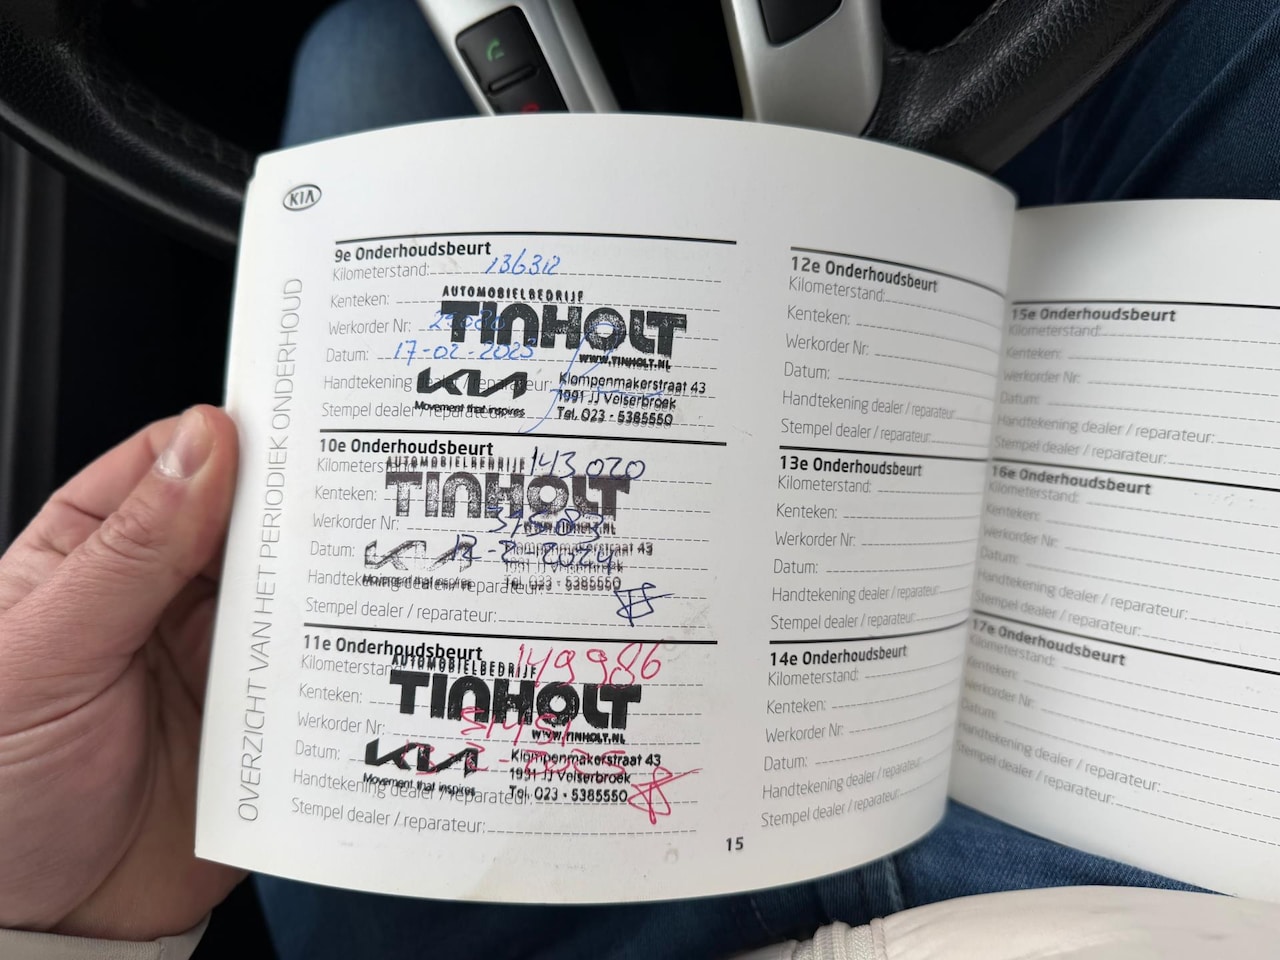 KIA
OVERZICHT VAN HET PERIODIEK ONDERHOUD
9e Onderhoudsbeurt
Kilometerstand: 136312
Kenteken:
AUTOMOBIELBEDRIJF
TINHOLT
Werkorder Nr:
WWW.TINHOLT.NL
Datum: 17-02-2023
Handtekening dealer / reparateur:
KIA
Klompenmakerstraat 43
1991 JJ Velserbroek
Movement that inspires
Tel. 023 - 5385550
Stempel dealer / reparateur:
10e Onderhoudsbeurt
Kilometerstand: 143020
AUTOMOBIELBEDRIJF
Kenteken:
TINHOLT
Werkorder Nr:
WWW.TINHOLT.NL
Datum: 12-2-2024
KIA
Klompenmakerstraat 43
1991 JJ Velserbroek
Handtekening dealer / reparateur:
Movement that inspires
Tel. 023 - 5385550
Stempel dealer / reparateur:
11e Onderhoudsbeurt
Kilometerstand: 149986
AUTOMOBIELBEDRIJF
Kenteken:
TINHOLT
Werkorder Nr:
WWW.TINHOLT.NL
Datum:
KIA
Klompenmakerstraat 43
1991 JJ Velserbroek
Handtekening dealer / reparateur:
Movement that inspires
Tel. 023 - 5385550
Stempel dealer / reparateur:
12e Onderhoudsbeurt
Kilometerstand:
Kenteken:
Werkorder Nr:
Datum:
Handtekening dealer / reparateur:
Stempel dealer / reparateur:
13e Onderhoudsbeurt
Kilometerstand:
Kenteken:
Werkorder Nr:
Datum:
Handtekening dealer / reparateur:
Stempel dealer / reparateur:
14e Onderhoudsbeurt
Kilometerstand:
Kenteken:
Werkorder Nr:
Datum:
Handtekening dealer / reparateur:
Stempel dealer / reparateur:
15
15e Onderhoudsbeurt
Kilometerstand:
Kenteken:
Werkorder Nr:
Datum:
Handtekening dealer / reparateur:
Stempel dealer / reparateur:
16e Onderhoudsbeurt
Kilometerstand:
Kenteken:
Werkorder Nr:
Datum:
Handtekening dealer / reparateur:
Stempel dealer / reparateur:
17e Onderhoudsbeurt
Kilometerstand:
Kenteken:
Werkorder Nr:
Datum:
Handtekening dealer / reparateur:
Stempel dealer / reparateur: